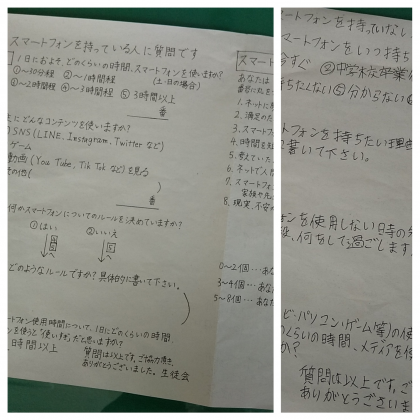 スマートフォンを持っている人に質問です
1日におよそ、どのくらいの時間、スマートフォンを使いますか?
①〜30分程 ②〜1時間程 (土・日の場合)
③〜2時間程 ④〜3時間程 ⑤3時間以上
番
にどんなコンテンツを使いますか?
SNS(LINE、Instagram、Twitterなど)
ゲーム
動画(YouTube、TikTokなど)を見る
その他( )
番
何かスマートフォンについてのルールを決めていますか?
①はい ②いいえ
どのようなルールですか?具体的に書いて下さい。
スマートフォン使用時間について、1日にどのくらいの時間
を使うと"使いすぎ"だと思いますか?
時間以上
質問は以上です。ご協力頂き、
ありがとうございました。生徒会
あなたは
番号に丸を
1. ネットに
2. 満足のた
3. スマートフォ
4. 時間を短
5. 考えていた
6. ネットで人
7. スマートフォ
家族や友
8. 現実、不安
0〜2個…あな
3〜4個…あな
5〜8個…あな
ートフォンを持っていない
マートフォンをいつ持ち
今すぐ ②中学校卒業
持ちたくない ⑤分からない ⑥
トフォンを持ちたい理由
書いて下さい。
ォンを使用しない日等の
、何をして過ごします
ビ・パソコン・ゲーム(等)の使
くらいの時間、メディアを使
か?
質問は以上です。ご
ありがとうございま